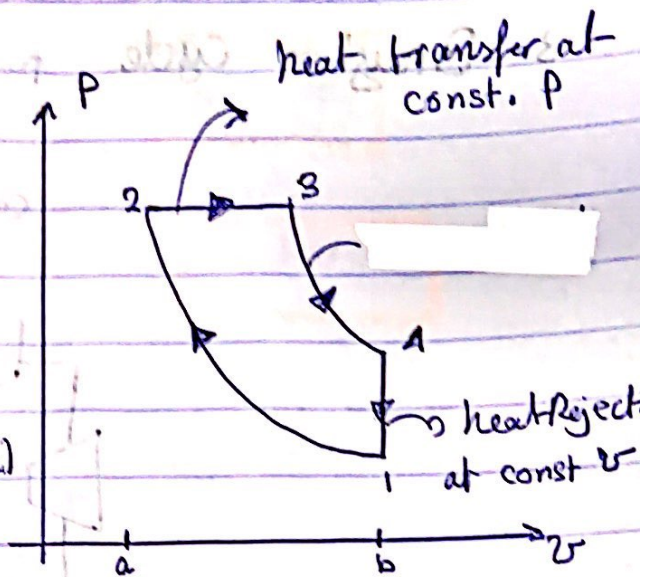 heat transfer at
const. P
P
2
3
4
heat Reject
at const v
1
v
a
b